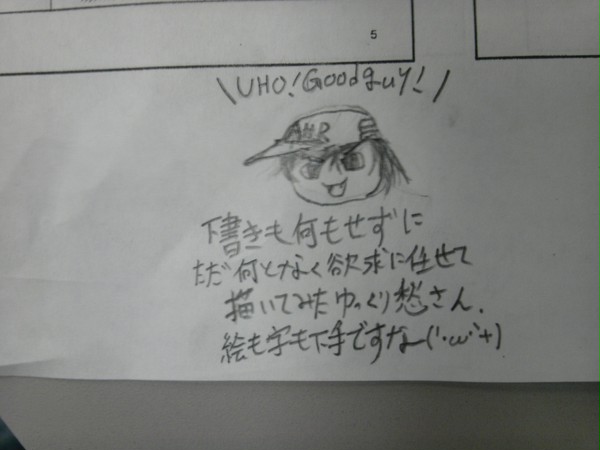 5
\UHO! Good guy! /
AHR
下書きも何もせずに
ただ何となく欲求に任せて
描いてみたゆっくり愁さん.
絵も字も下手ですなー(´･ω･`+)